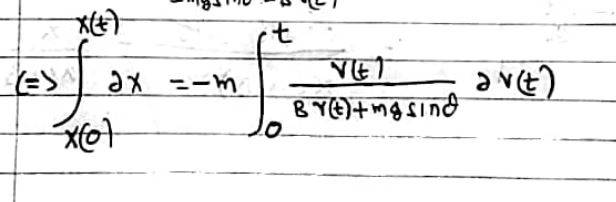 (=> ∫_{x(0)}^{x(t)} ∂x = -m ∫_{0}^{t} \frac{v(t)}{B v(t) + mg sinθ} ∂v(t)